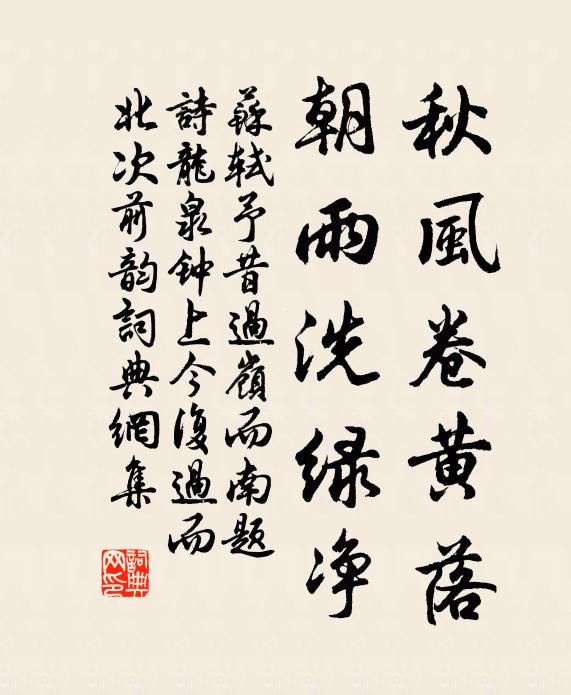 秋風卷黄落
朝雨洗緑净
蘇軾予昔過嶺而南題
詩龍泉钟上今復過而
北次前韵詞典網集
詞典
网印